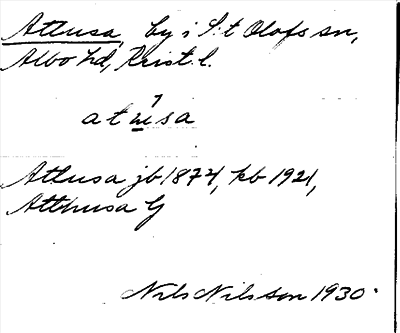 Attusa, by i S:t Olofs sn,
Albo hd, Krist. l.
atusa
Attusa jb 1874, kb 1921,
Atthusa G
Nils Nilsson 1930.